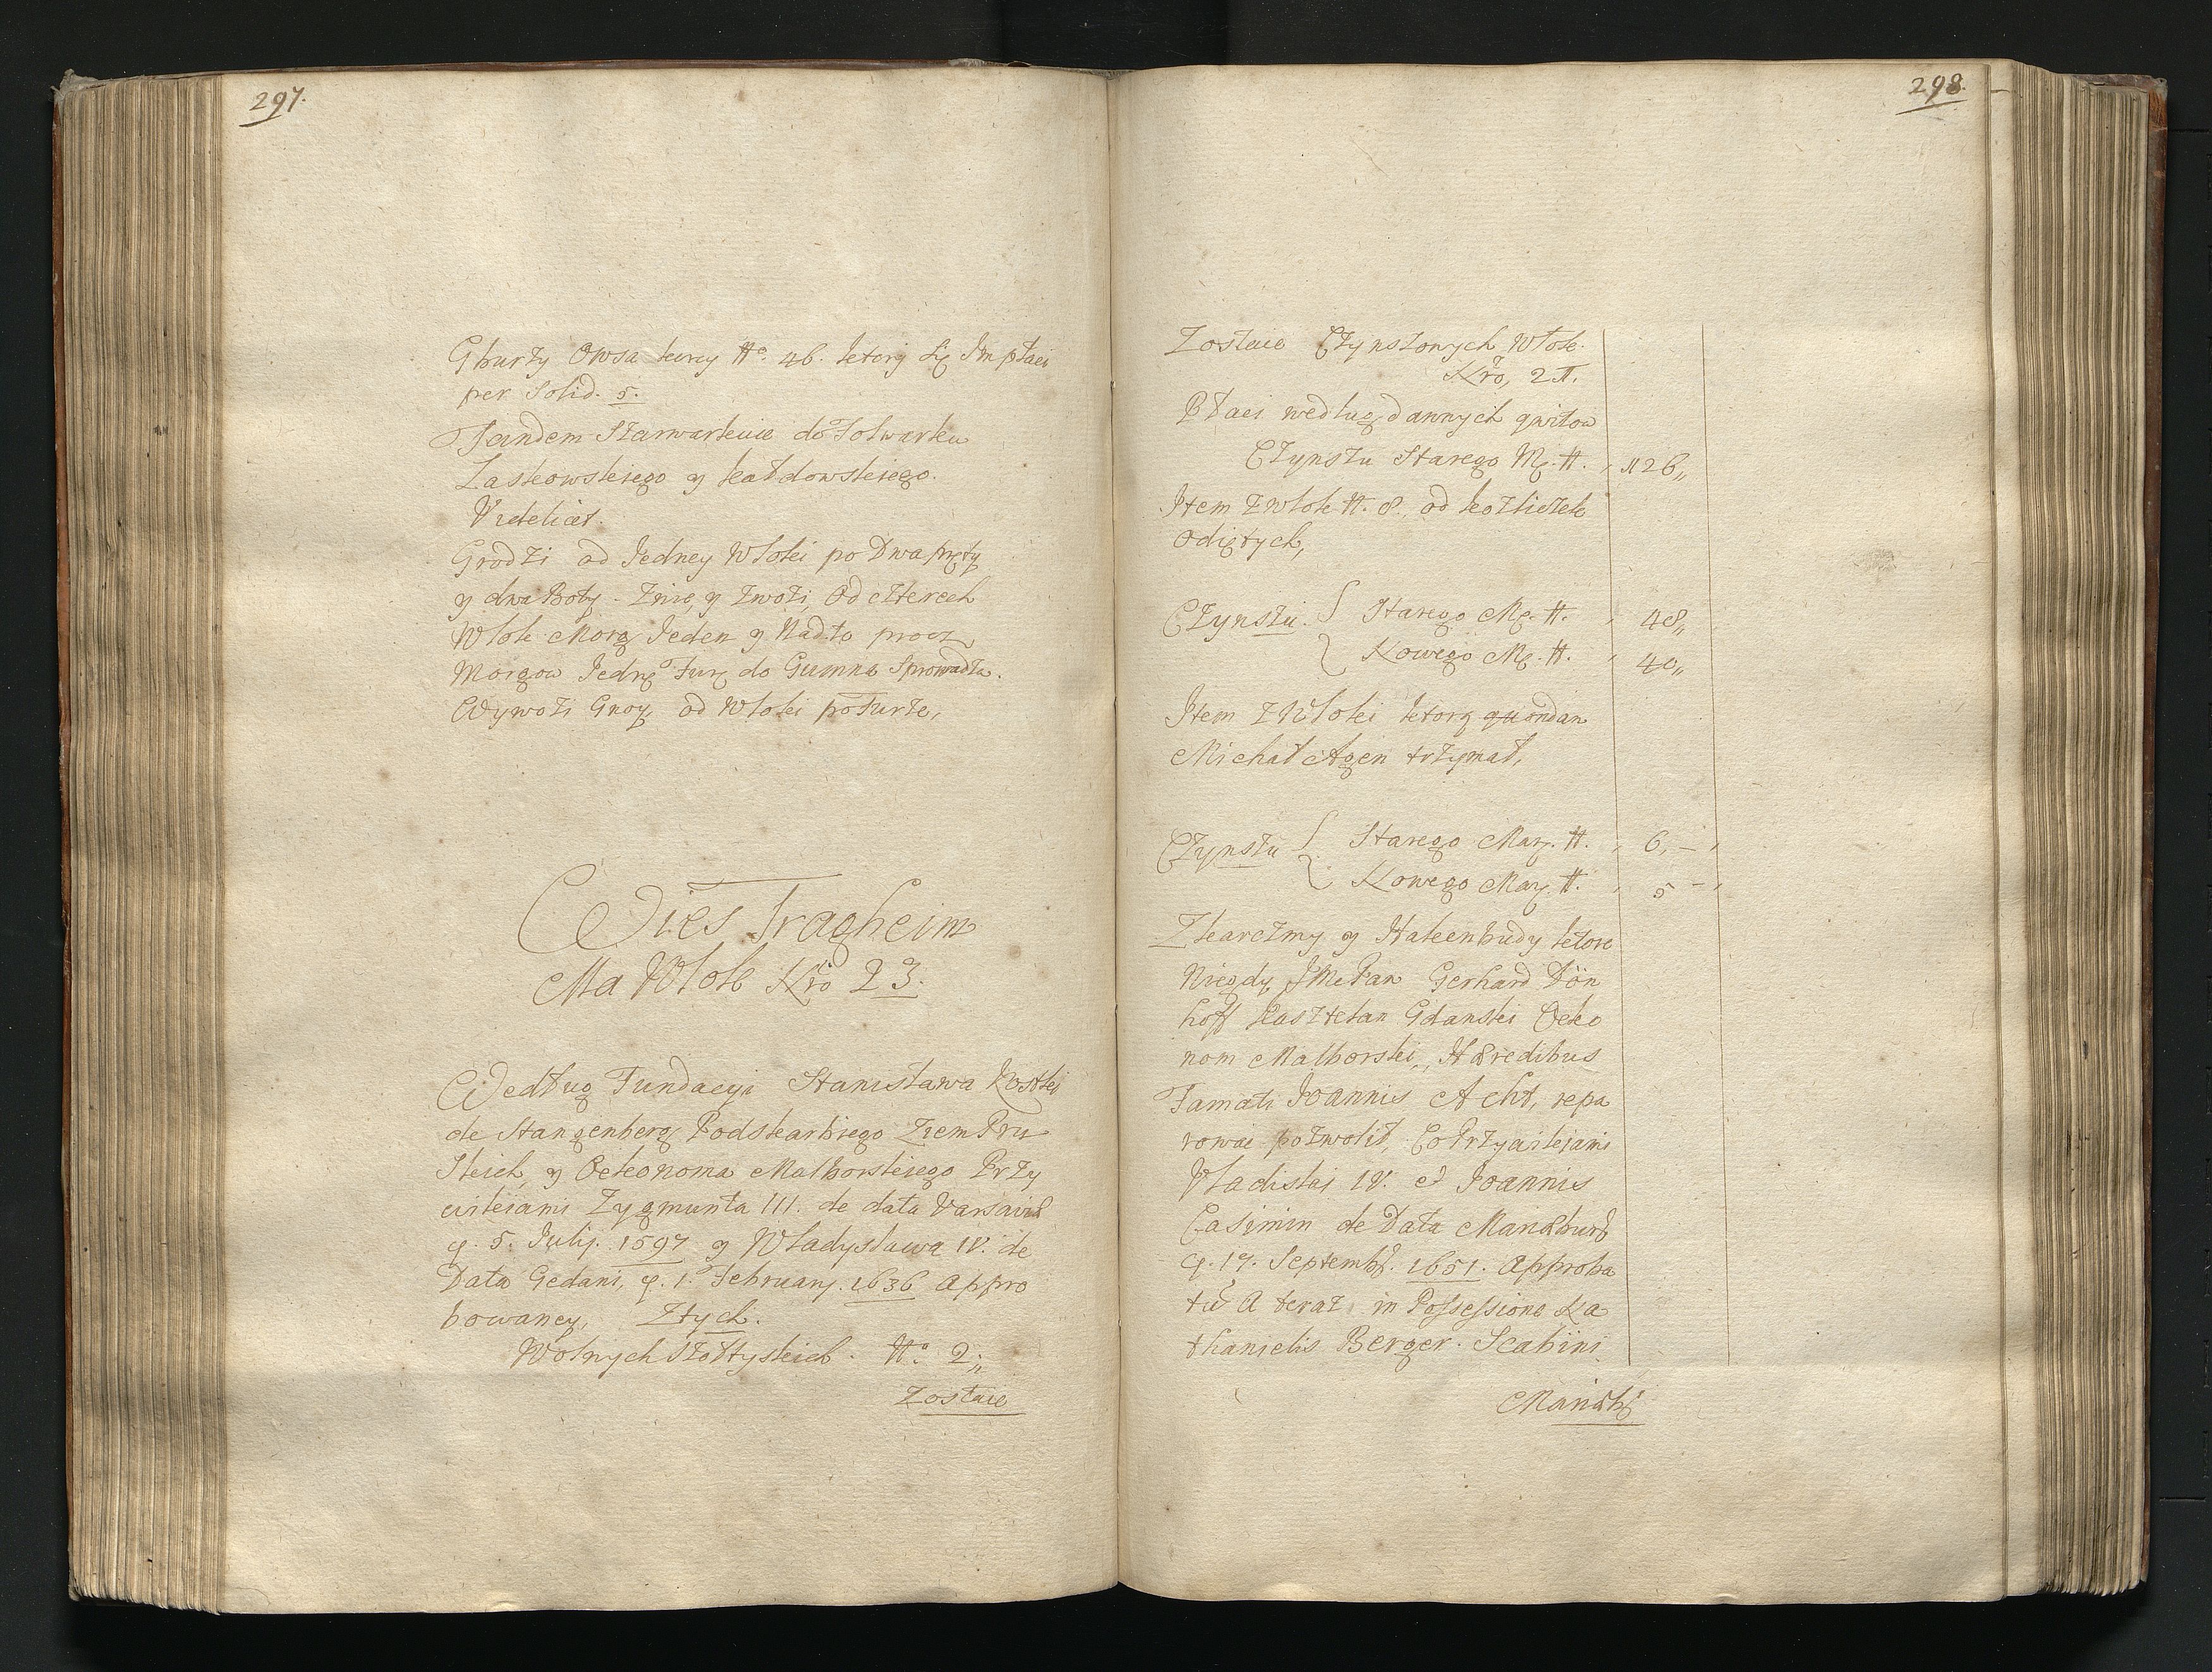 297.
Gburzy Owsa korcy No. 46. ktory się Im płaci
per Solid. 5.
Tandem Szarwarkuie do Folwarku
Laskowskiego y Kałdowskiego.
Videlicet.
Grodzi od Jedney Włoki po Dwa pręty
y dwa Boty. Znie, y Zwozi, Od czterech
Włok Morg Jeden y Nadto procz
Morgow Jednę Furę do Gumna Sprowadza.
Wywozi Gnoy, od Włoki po Furze,
Wies Tragheim
Ma Włok Nro 23.
Według Fundacyi Stanisława Kostki
de Stangenberg Podskarbiego Ziem Pru
skich, y Oekonoma Malborskiego Przy
wileiami Zygmunta III. de data Varsaviæ
q. 5. Julij. 1597 y Władysława IV. de
Data Gedani, q. 1. Februarij. 1636 appro
bowaney, Ztych.
Wolnych Szołtyskich. No. 2.,,
Zostaie
298.
Zostaie Czynszowych Włok.
Nro, 21.
Płaci według dawnych qwitow
Czynszu Starego Mg. #. 126,,
Item Z Włok #. 8. od Kozliczek
odiętych,
Czynszu. { Starego Mg. #. 48,,
Nowego Mg. #. 40,,
Item Z Włoki ktorą quondam
Michał Agen trzymał,
Czynszu { Starego Marg. #. 6,-,
Nowego Marg. #. 5 -,
Z karczmy y Hakenbudy ktore
Niegdy JMc Pan Gerhard Dön
hoff Kasztelan Gdanski Oeko
nom Malborski, Hæredibus
Famati Joannis Acht, repa
rowac pozwolił, Co Przywilejami
Vladislai IV. et Joannis
Casimiri de Data Mariæburg
q. 17. Septembr. 1651. Approba
tū A teraz in Possessione Na
thanielis Berger. Scabini
Mariæb